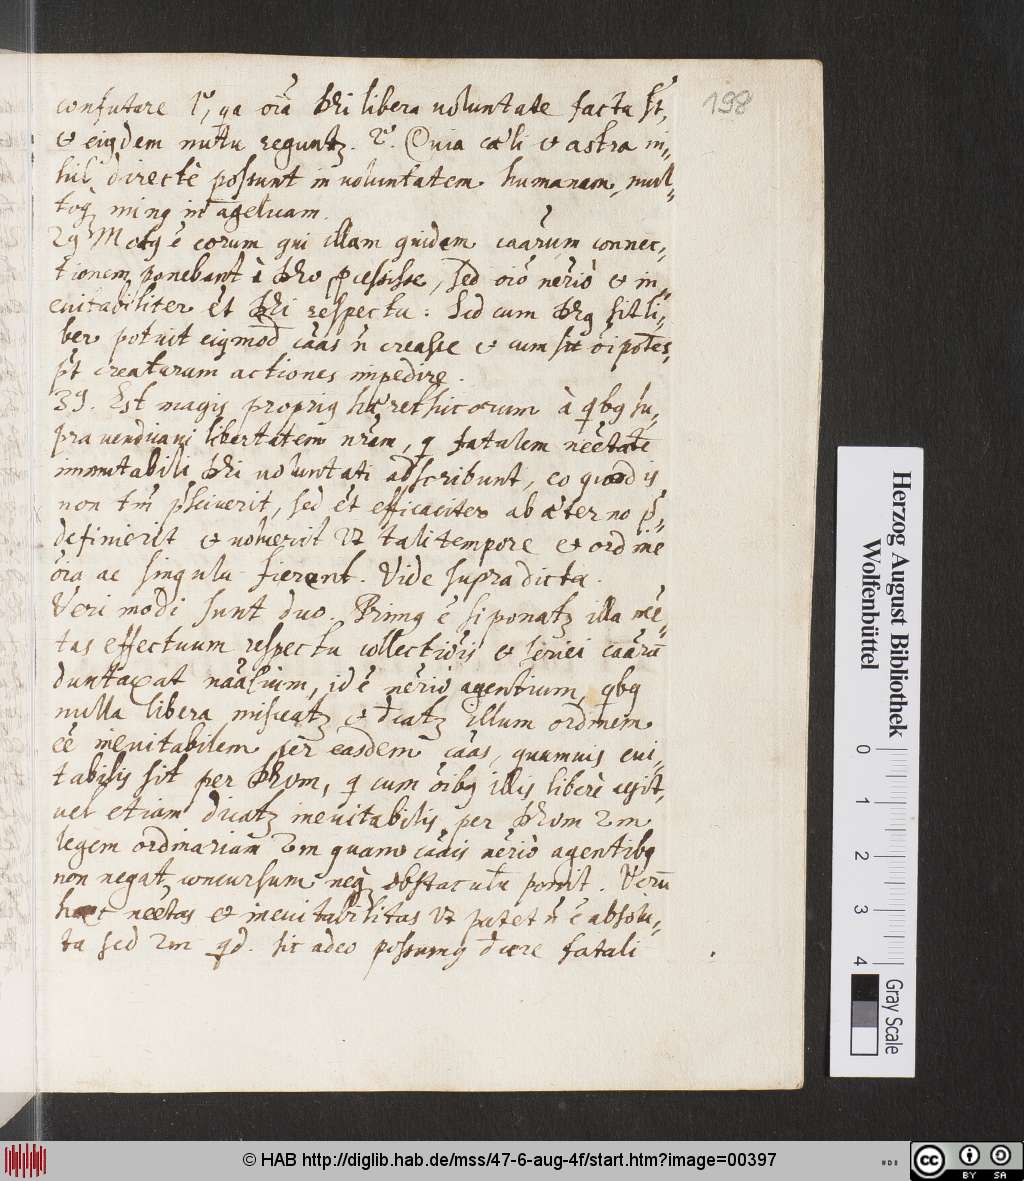 198
confutare 1º, qa oĩa Dei libera voluntate facta sūt,
& eiqdem nutu regunt. 2º. Quia cæli & astra in-
hil directè possunt in voluntatem humanam, mul-
toq minq in agelicam.
2q Modq ē eorum qui illam quidem caārum connec-
tionem ponebant à Deo processisse, sed oīo nēriò & in-
evitabiliter ēt Dei respectu: Sed cum Deq sit li-
ber potuit eiqmodi cāas ñ creasse & cum sit oīpotēs,
pōt creaturum actiones impedire.
3q. Est magis propriq hærethicorum à qbq su-
pra vendicavi libertatem nrām, q fatalem nēctātē
immutabili Dei voluntati adscribunt, eo quod is
non tm̄ præsciverit, sed ēt efficaciter ab æterno p̄-
definierit & voluerit ut tali tempore & ordine
oīa ac singula fierent. Vide supra dicta.
Veri modi sunt duo. Primq ē si ponat illa nē-
tas effectuum respectu collectiōis & seriei caārū
duntaxat nāāliuim, id ē nēriò agentium, qbq
nulla libera misceat, & dicat illum ordinem
ēē inevitabilem per easdem cāas, quamvis evi-
tabilis sit per Deum, q cum oībq illis liberè agit,
vel etiam dicat inevitabilis per Deum 2m
legem ordinariam 2m quam cāais nēriò agentibq
non negat concursum neq obstaculū ponit. Verū
hæc nēctas & inevitabilitas ut patet ñ ē absolu-
ta sed 2m qd. sic adeo possumq dicere fatali
Herzog August Bibliothek
Wolfenbüttel
0 1 2 3 4
Gray Scale
© HAB http://diglib.hab.de/mss/47-6-aug-4f/start.htm?image=00397
cc BY SA